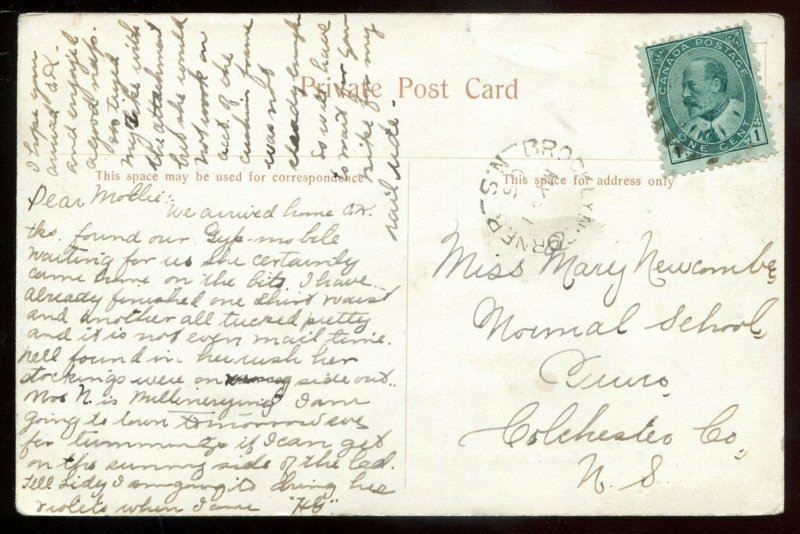 Private Post Card
CANADA POSTAGE
ONE CENT
1
BROOKLYN CORNER N.S.
This space may be used for correspondence
This space for address only
Dear Mollie:
We arrived home O.K.
tks. found our Gyp-mobile
waiting for us she certainly
came home on the bits. I have
already finished one shirt waist
and another all tucked pretty
and it is not even mail time.
Nell found in her rush her
stockings were on side out.
Mrs N. is Millinerying I am
going to town tomorrow eve
for if I can get
on the sunny side of the Dad.
Tell Lidy I am going to bring her
violets when I come "HB"
I hope you
arrived O.K.
and enjoyed
a good nap.
so tryed
my luck with
the attachment
but she would
not work on
acct. of the
cushion frame
was not
so will have
to wait for you
bike for my
sail ride.
Miss Mary Newcombe,
Normal School,
Truro,
Colchester Co,
N. S.